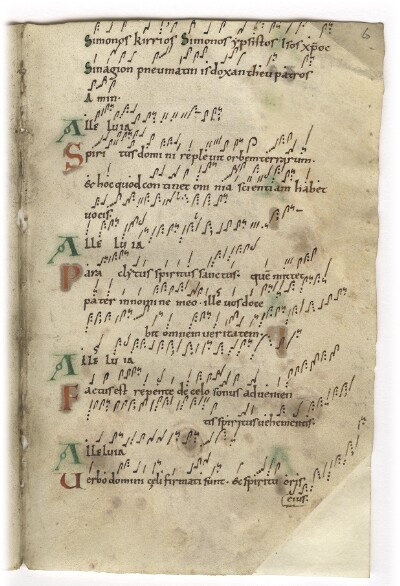 6
Simonos kirrios Simonos ypsistos Isos xpoc
Sinagion pneumatin is doxan theu patros
Amin.
Alle luia
Spiri tus domini repleuit orbem terrarum.
& hoc quod continet om nia scientiam habet
uocis.
Alle lu ia
Para clytus spiritus sanctus. que mittet
pater in nomine meo. ille uos doce
bit omnem ueritatem.
Alle lu ia
Factus est repente de celo sonus aduenien
tis spiritus uehementis.
Alleluia
Uerbo domini celi firmati sunt. & spiritu oris
eius.